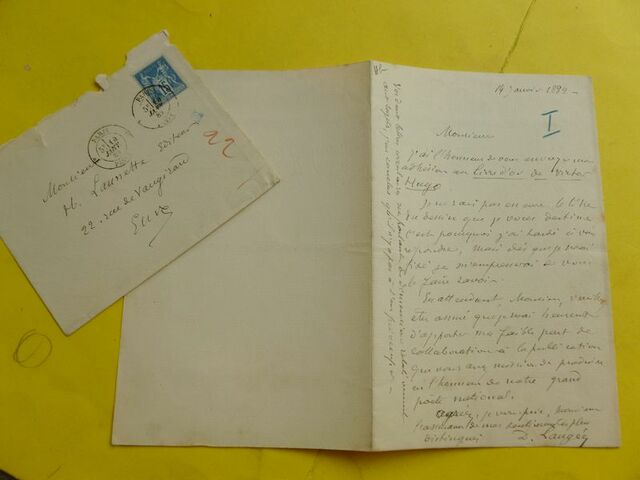 Monsieur
H. Launette Editeur
22 rue de Vaugirard
E.V.
22
PARIS
19 Janvier 188
I
Monsieur
J'ai l'honneur de vous envoyer mon
adhésion au livre d'or de Victor
Hugo
Je ne sais pas encore le titre
du dessin que je vous destine
c'est pourquoi j'ai tardé à vous
répondre, mais dès que je serai
fixé je m'empresserai de vous
le faire savoir.
En attendant, Monsieur, veuillez
être assuré que je serai heureux
d'apporter ma faible part de
collaboration à la publication
que vous avez de produire
en l'honneur de notre grand
poète national.
agréez, je vous prie, Monsieur
l'assurance de mes sentiments les plus
distingués
D. Laugée